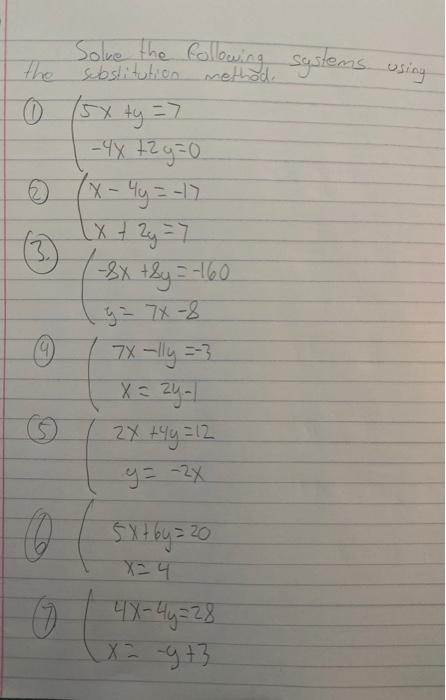 Solve the following systems using
the substitution method.
① 5x + y = 7
-4x + 2y = 0
② x - 4y = -17
x + 2y = 7
③. -8x + 8y = -160
y = 7x - 8
④ 7x - 11y = -3
x = 2y - 1
⑤ 2x + 4y = 12
y = -2x
⑥ 5x + 6y = 20
x = 4
⑦ 4x - 4y = 28
x = -y + 3